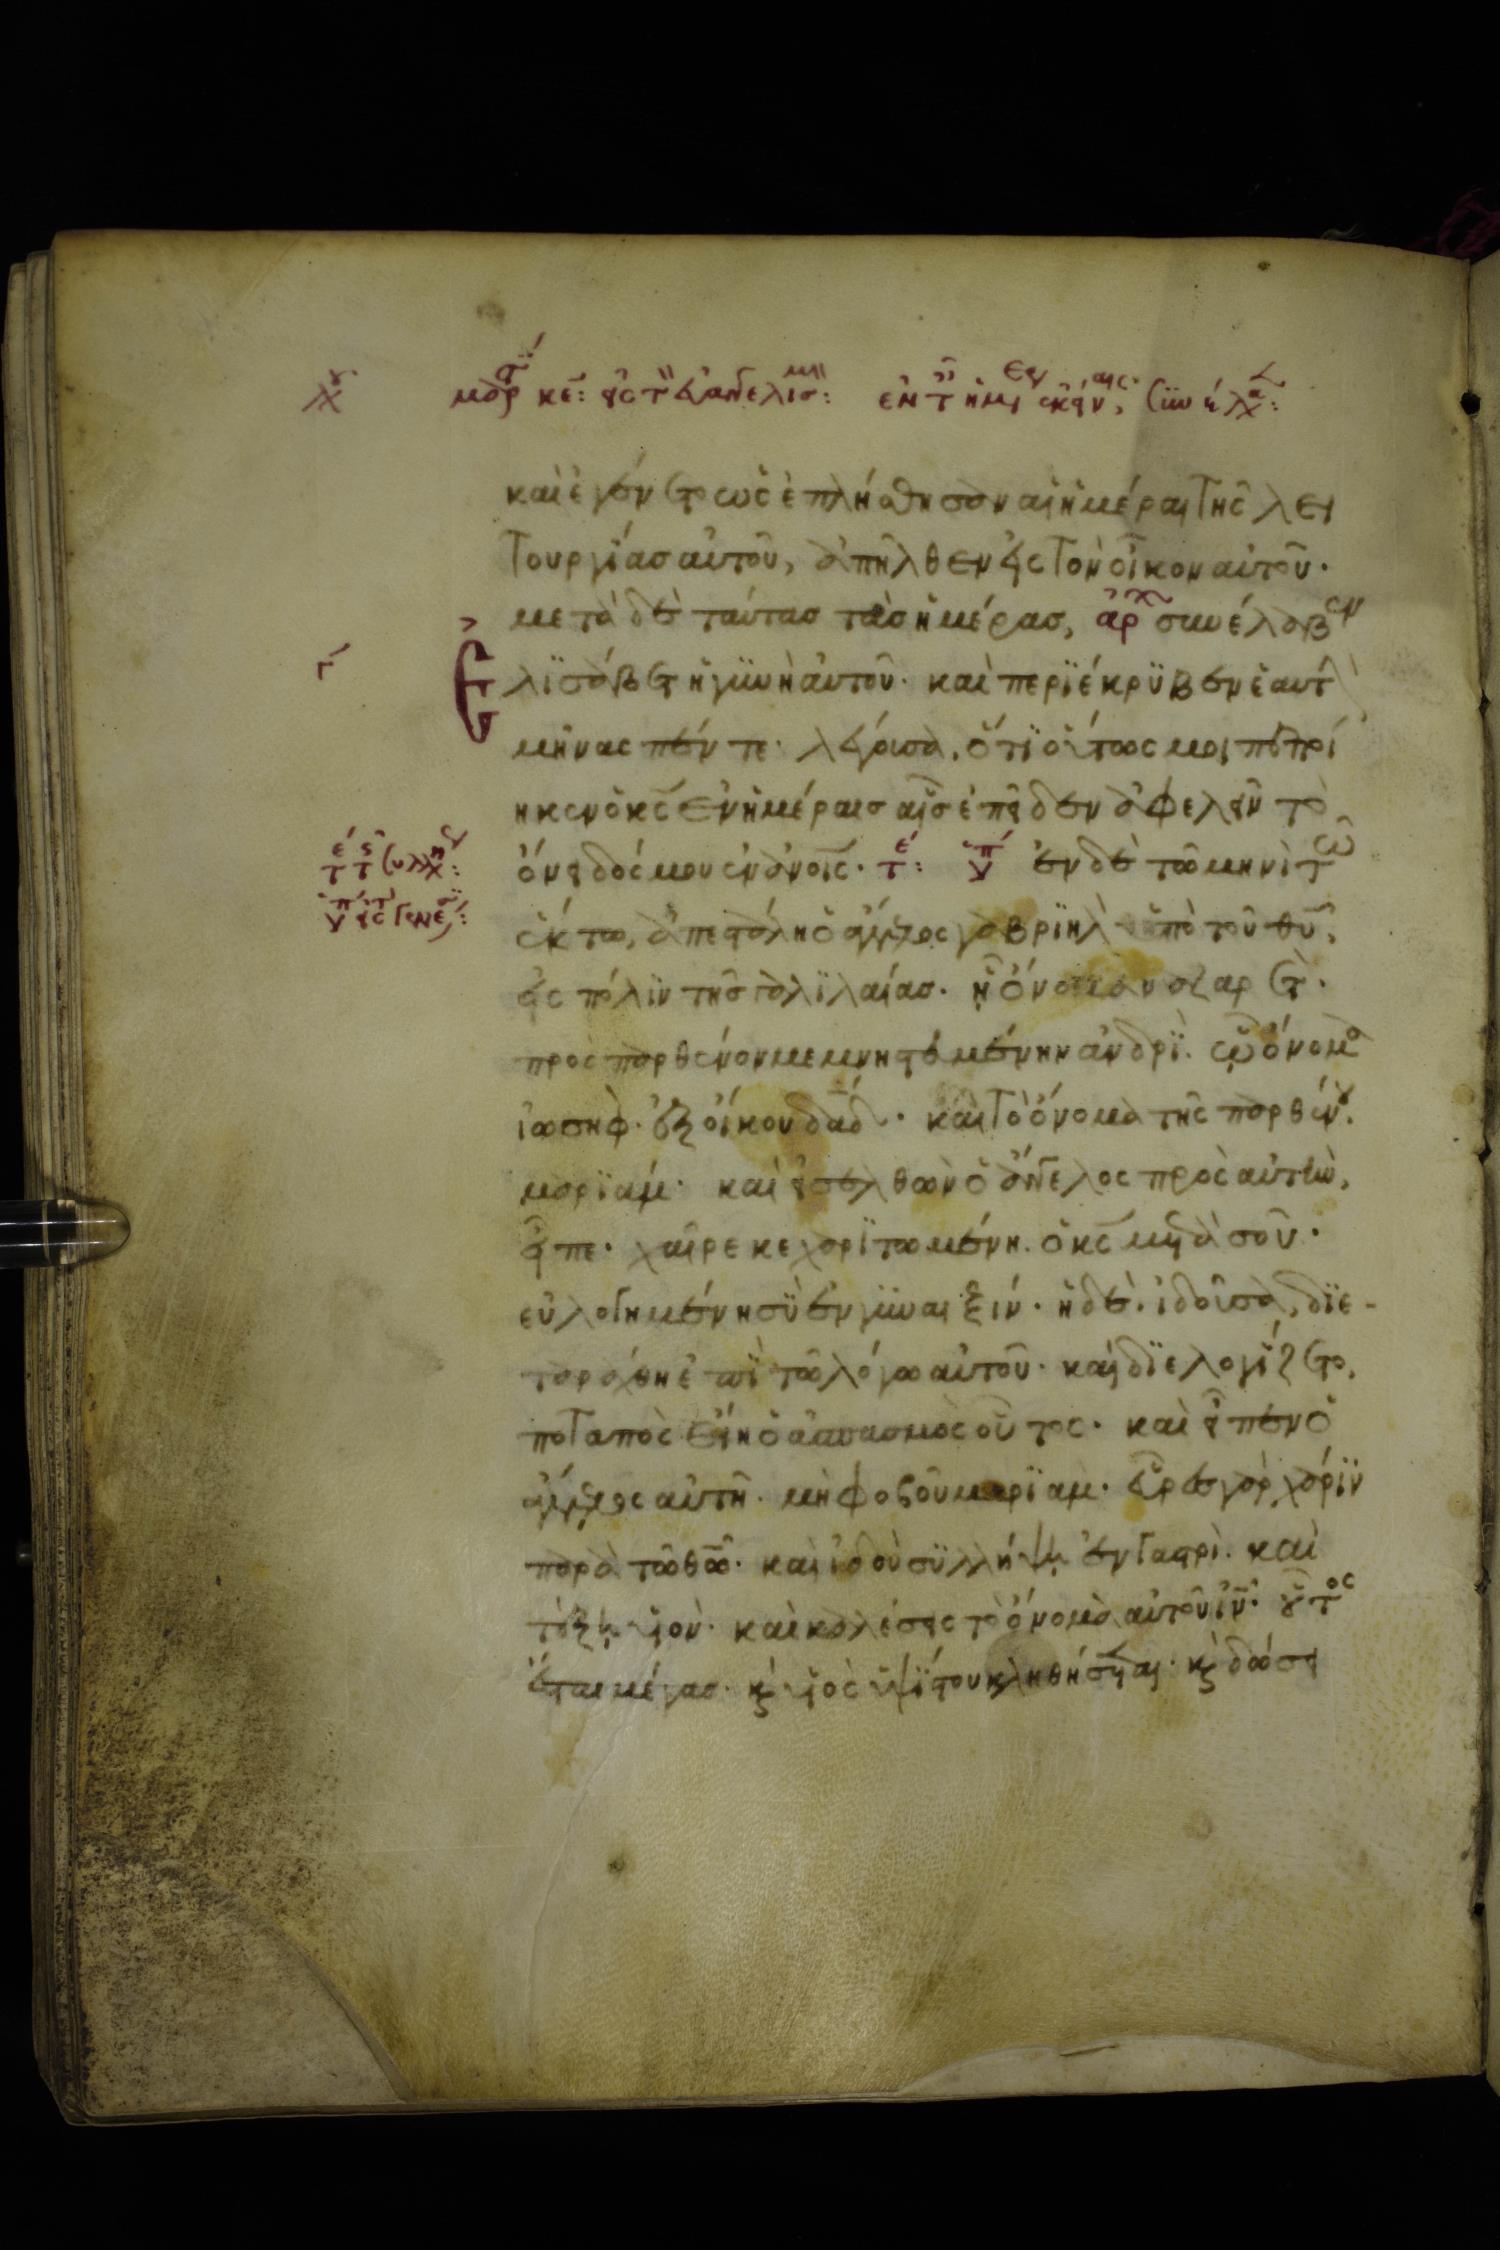 μαρ κε: εἰς τ εὐαγγελισμ: ἐν τ ἡμ ἐκείναις, συνέλα:
καὶ ἐγένετο ὡς ἐπλήσθησαν αἱ ἡμέραι τῆς λει
τουργίασ αὐτοῦ, ἀπῆλθεν εἰς τὸν οἶκον αὐτοῦ.
μετὰ δὲ ταύτασ τὰσ ἡμέρασ, ἀρχ συνέλαβεν
Ἐλϊσάβετ ἡ γϋνὴ αὐτοῦ. καὶ περϊέκρϋβεν ἑαυτὴ
μῆνας πέντε. λέγουσα, ὅτϊ οὕτως μοι πεποί
ηκεν ὁ κς ἐν ἡμέραισ αἷσ ἐπεῖδεν ἀφελεῖν τὸ
ὄνειδός μου ἐν ἀνοις. τέ: ἐν δὲ τῶ μηνὶ τῶ
ἕκτω, ἀπεστάλη ὁ ἄγγελος γαβρϊὴλ ὑπὸ τοῦ θυ,
εἰς πόλϊν τῆσ γαλϊλαίασ. ἧ ὄνομα ναζαρέτ.
πρὸς παρθένον μεμνηστευμένην ἀνδρϊ. ὧ ὄνομα
ἰωσὴφ. ἐξ οἴκου δαδ. καὶ τὸ ὄνομα τῆς παρθένου.
μαρϊάμ. καὶ εἰσελθὼν ὁ ἄγγελος πρὸς αὐτὴν,
εἶπε. χαῖρε κεχαρϊτωμένη. ὁ κς μετὰ σοῦ.
εὐλογημένη σϋ ἐν γϋναιξίν. ἡ δὲ. ἰδοῦσα, δϊε-
ταράχθη ἐπϊ τῶ λόγω αὐτοῦ. καὶ δϊελογίζετο,
ποταπὸς εἴη ὁ ἀσπασμὸς οὗτος. καὶ εἶπεν ὁ
ἄγγελος αὐτῆ. μὴ φοβοῦ μαρϊάμ. εὗρες γὰρ χάρϊν
παρὰ τῶ θῶ. καὶ ἰδοὺ σϋλλήψη ἐν γαστρὶ. καὶ
τέξη υἱὸν. καὶ καλέσεις τὸ ὄνομα αὐτοῦ ιν. οὗτος
ἔσται μέγασ. καὶ υἱὸς ὑψϊστου κληθήσεται. καὶ δώσει